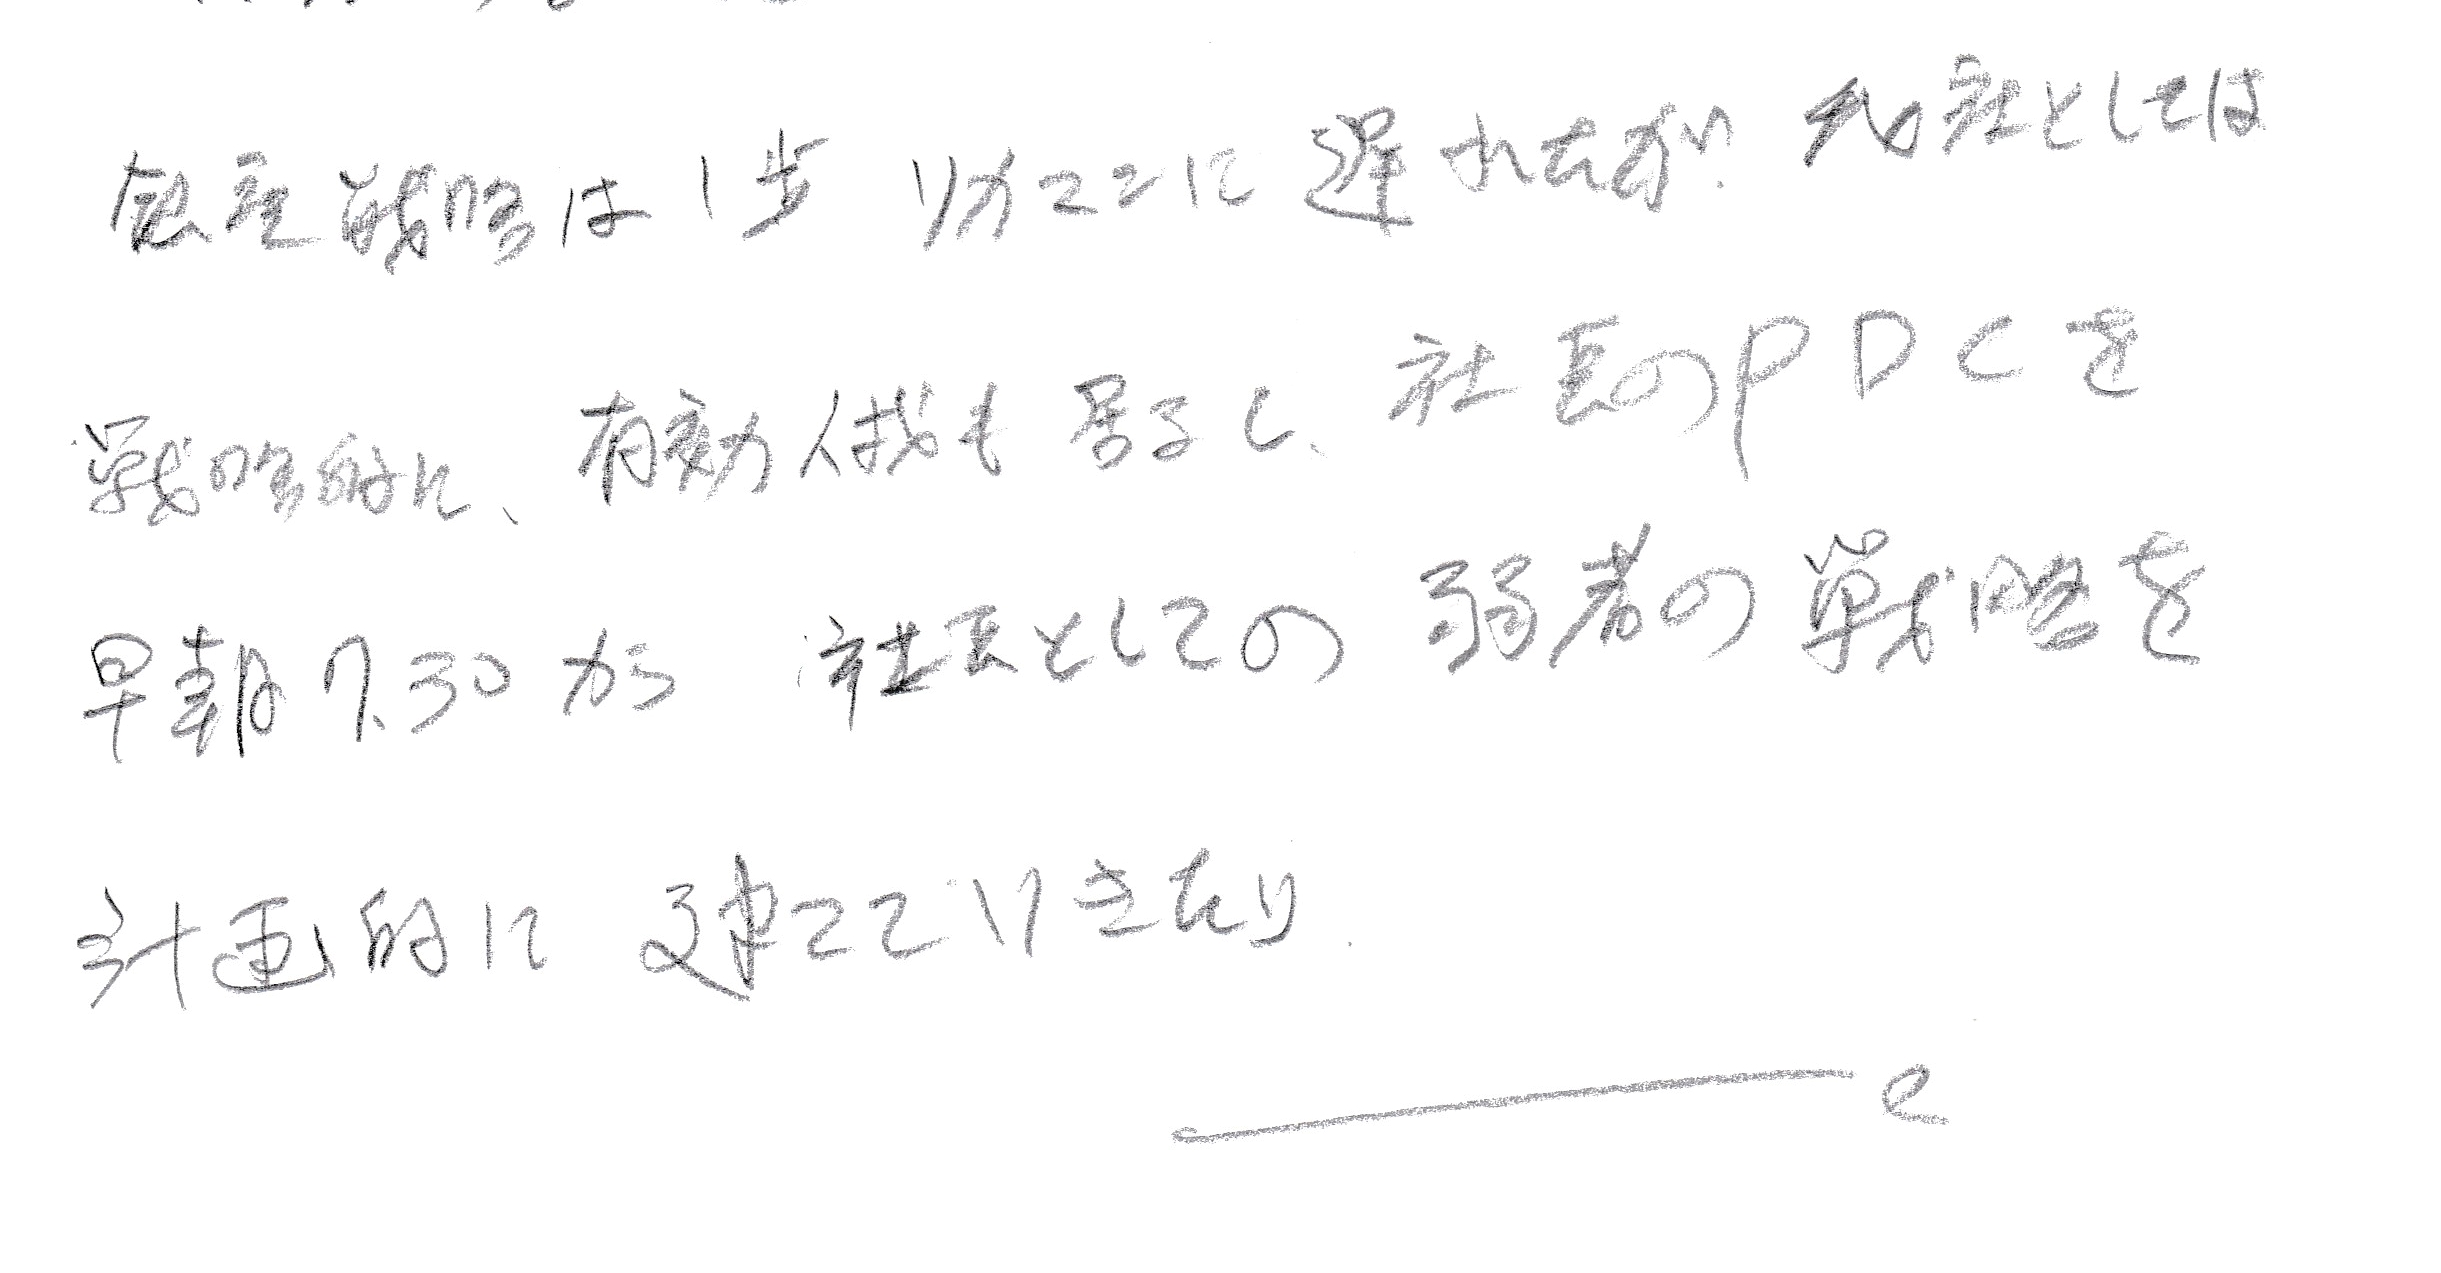 戦略は1歩リカココに遅れたが、弊社としては
戦略的に、有効人財も居るし、社長のPDCを
早朝7.30から 社長としての弱者の戦略を
計画的に建てていきたい.